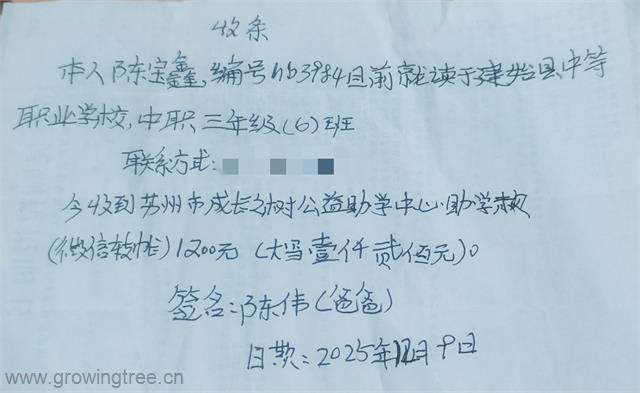 收条
本人陈宝鑫,编号hb3984目前就读于建始县中等
职业学校,中职三年级(6)班
联系方式:
今收到苏州市成长之树公益助学中心助学款
(微信转帐)1200元(大写壹仟贰佰元)。
签名:陈伟(爸爸)
日期:2025年12月9日
www.growingtree.cn